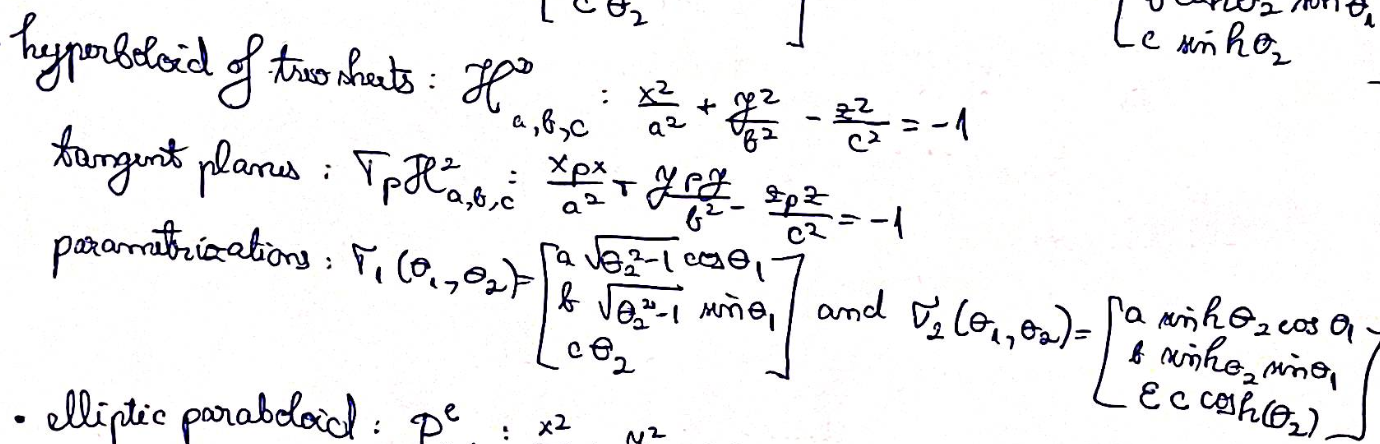 [ c θ_2 ] [ b cosh θ_2 sin θ_1
c sinh θ_2
hyperboloid of two sheets : ℋ^2_{a,b,c} : x^2/a^2 + y^2/b^2 - z^2/c^2 = -1
tangent planes : T_pℋ^2_{a,b,c} : x_p x/a^2 + y_p y/b^2 - z_p z/c^2 = -1
parametrizations : r_1 (θ_1, θ_2) = [ a √(θ_2^2-1) cos θ_1 ; b √(θ_2^2-1) sin θ_1 ; c θ_2 ] and r_2 (θ_1, θ_2) = [ a sinh θ_2 cos θ_1 ; b sinh θ_2 sin θ_1 ; ε c cosh(θ_2) ]
• elliptic paraboloid : P^e : x^2 y^2